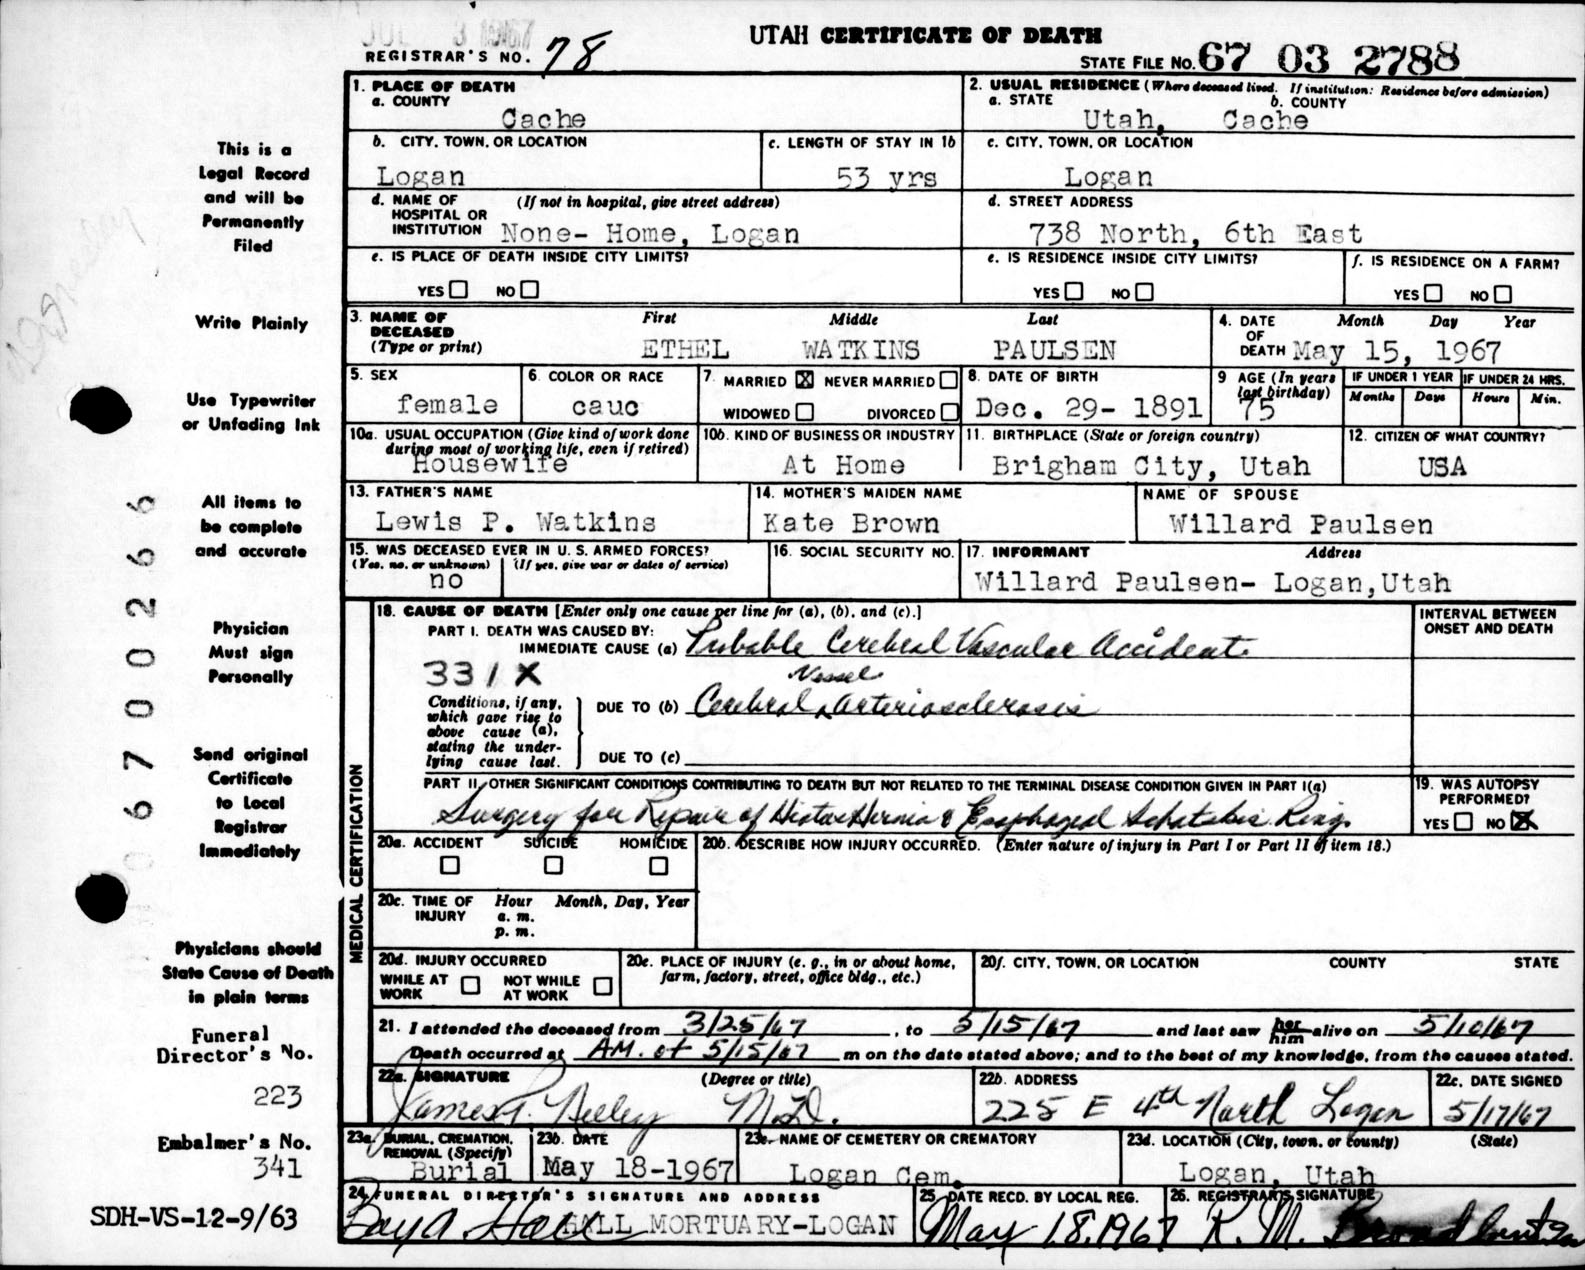 JUL 3 1967
UTAH CERTIFICATE OF DEATH
REGISTRAR'S NO. 78
STATE FILE NO. 67 03 2788
This is a
Legal Record
and will be
Permanently
Filed
Write Plainly
Use Typewriter
or Unfading Ink
All items to
be complete
and accurate
Physician
Must sign
Personally
Send original
Certificate
to Local
Registrar
Immediately
Physicians should
State Cause of Death
in plain terms
Funeral
Director's No.
223
Embalmer's No.
341
SDH-VS-12-9/63
06700266
1. PLACE OF DEATH
a. COUNTY
Cache
2. USUAL RESIDENCE (Where deceased lived. If institution: Residence before admission)
a. STATE b. COUNTY
Utah, Cache
b. CITY, TOWN, OR LOCATION
Logan
c. LENGTH OF STAY IN 1b
53 yrs
c. CITY, TOWN, OR LOCATION
Logan
d. NAME OF HOSPITAL OR INSTITUTION (If not in hospital, give street address)
None- Home, Logan
d. STREET ADDRESS
738 North, 6th East
e. IS PLACE OF DEATH INSIDE CITY LIMITS?
YES NO
e. IS RESIDENCE INSIDE CITY LIMITS?
YES NO
f. IS RESIDENCE ON A FARM?
YES NO
3. NAME OF DECEASED (Type or print) First Middle Last
ETHEL WATKINS PAULSEN
4. DATE OF DEATH Month Day Year
May 15, 1967
5. SEX
female
6. COLOR OR RACE
cauc
7. MARRIED ☒ NEVER MARRIED
WIDOWED DIVORCED
8. DATE OF BIRTH
Dec. 29- 1891
9 AGE (In years last birthday)
75
IF UNDER 1 YEAR IF UNDER 24 HRS.
Months Days Hours Min.
10a. USUAL OCCUPATION (Give kind of work done during most of working life, even if retired)
Housewife
10b. KIND OF BUSINESS OR INDUSTRY
At Home
11. BIRTHPLACE (State or foreign country)
Brigham City, Utah
12. CITIZEN OF WHAT COUNTRY?
USA
13. FATHER'S NAME
Lewis P. Watkins
14. MOTHER'S MAIDEN NAME
Kate Brown
NAME OF SPOUSE
Willard Paulsen
15. WAS DECEASED EVER IN U. S. ARMED FORCES?
(Yes, no, or unknown) (If yes, give war or dates of service)
no
16. SOCIAL SECURITY NO.
17. INFORMANT Address
Willard Paulsen- Logan,Utah
MEDICAL CERTIFICATION
18. CAUSE OF DEATH [Enter only one cause per line for (a), (b), and (c).]
INTERVAL BETWEEN ONSET AND DEATH
PART I. DEATH WAS CAUSED BY:
IMMEDIATE CAUSE (a) Probable Cerebral Vascular Accident
331X
Conditions, if any, which gave rise to above cause (a), stating the underlying cause last.
Vessel
DUE TO (b) Cerebral Arteriosclerosis
DUE TO (c)
PART II. OTHER SIGNIFICANT CONDITIONS CONTRIBUTING TO DEATH BUT NOT RELATED TO THE TERMINAL DISEASE CONDITION GIVEN IN PART I(a)
Surgery for Repair of Hiatus Hernia & Esophageal Schatskis Ring
19. WAS AUTOPSY PERFORMED?
YES NO ☒
20a. ACCIDENT SUICIDE HOMICIDE
20b. DESCRIBE HOW INJURY OCCURRED. (Enter nature of injury in Part I or Part II of item 18.)
20c. TIME OF INJURY Hour Month, Day, Year
a. m.
p. m.
20d. INJURY OCCURRED
WHILE AT WORK NOT WHILE AT WORK
20e. PLACE OF INJURY (e. g., in or about home, farm, factory, street, office bldg., etc.)
20f. CITY, TOWN, OR LOCATION COUNTY STATE
21. I attended the deceased from 3/25/67, to 5/15/67 and last saw her him alive on 5/10/67
Death occurred at AM. of 5/15/67 m on the date stated above; and to the best of my knowledge, from the causes stated.
22a. SIGNATURE (Degree or title)
James P. Neeley M.D.
22b. ADDRESS
225 E 4th North Logan
22c. DATE SIGNED
5/17/67
23a. BURIAL, CREMATION, REMOVAL (Specify)
Burial
23b. DATE
May 18-1967
23c. NAME OF CEMETERY OR CREMATORY
Logan Cem.
23d. LOCATION (City, town, or county) (State)
Logan, Utah
24. FUNERAL DIRECTOR'S SIGNATURE AND ADDRESS
HALL MORTUARY-LOGAN
25. DATE RECD. BY LOCAL REG.
May 18, 1967
26. REGISTRAR'S SIGNATURE
R. M. Broadbent